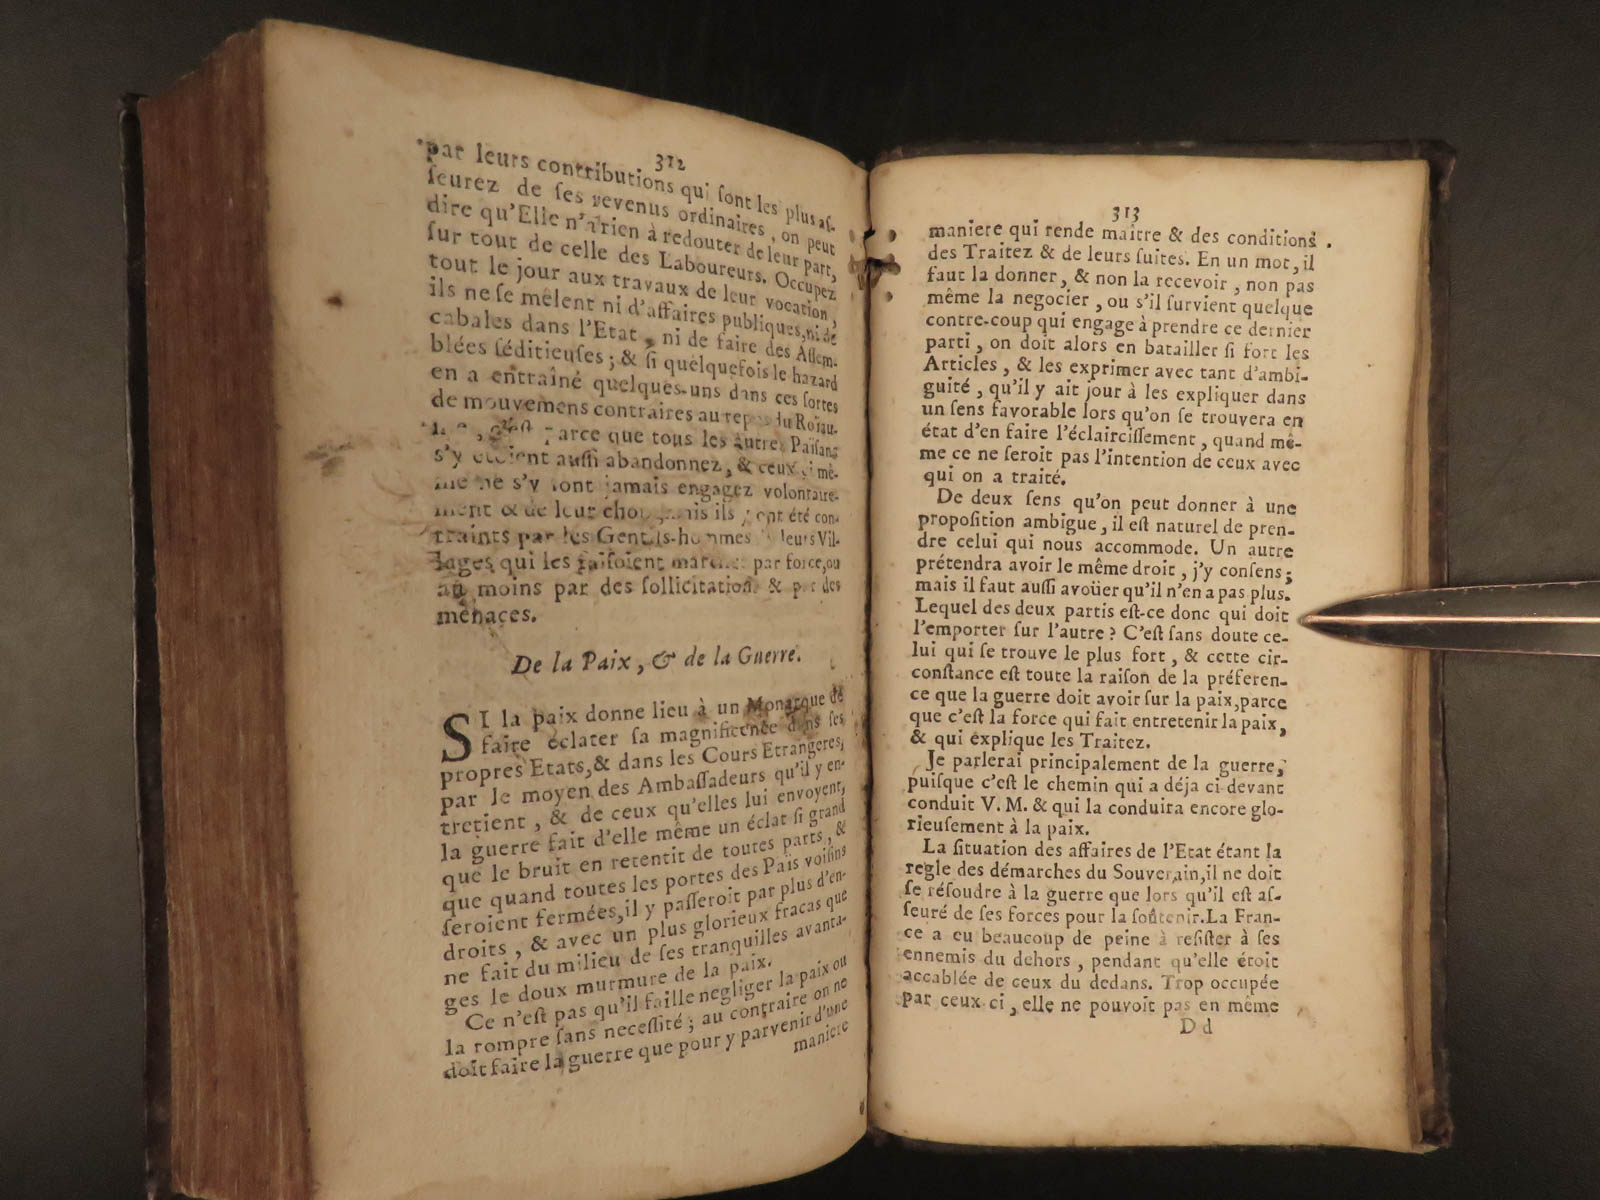 312
par leurs contributions qui ſont les plus aſ-
ſeurez de ſes revenus ordinaires, on peut
dire qu'Elle n'a rien à redouter de leur part,
ſur tout de celle des Laboureurs. Occupez
tout le jour aux travaux de leur vocation,
ils ne ſe mêlent ni d'affaires publiques, ni de
cabales dans l'Etat, ni de faire des Aſſem-
blées ſéditieuſes; & ſi quelquefois le hazard
en a entraîné quelques-uns dans ces ſortes
de mouvemens contraires au repos du Roïau-
parce que tous les autres Païſans
s'y étoient auſſi abandonnez, & ceux ci mê-
me ne s'y ſont jamais engagez volontaire-
ment & de leur choix, mais ils y ont été con-
traints par les Gentils-hommes leurs Vil-
lages, qui les faiſoient marcher par force, ou
au moins par des ſollicitations & par des
menaces.
De la Paix, & de la Guerre.
SI la paix donne lieu à un Monarque de
faire éclater ſa magnificence dans ſes
propres Etats, & dans les Cours Etrangeres,
par le moyen des Ambaſſadeurs qu'il y en-
tretient, & de ceux qu'elles lui envoyent,
la guerre fait d'elle même un éclat ſi grand
que le bruit en retentit de toutes parts, &
que quand toutes les portes des Païs voiſins
ſeroient fermées, il y paſſeroit par plus d'en-
droits, & avec un plus glorieux fracas que
ne fait du milieu de ſes tranquilles avanta-
ges le doux murmure de la paix.
Ce n'eſt pas qu'il faille negliger la paix ou
la rompre ſans neceſſité; au contraire on ne
doit faire la guerre que pour y parvenir d'une
maniere
313
maniere qui rende maître & des conditions
des Traitez & de leurs ſuites. En un mot, il
faut la donner, & non la recevoir, non pas
même la negocier, ou s'il ſurvient quelque
contre-coup qui engage à prendre ce dernier
parti, on doit alors en batailler ſi fort les
Articles, & les exprimer avec tant d'ambi-
guité, qu'il y ait jour à les expliquer dans
un ſens favorable lors qu'on ſe trouvera en
état d'en faire l'éclairciſſement, quand mê-
me ce ne ſeroit pas l'intention de ceux avec
qui on a traité.
De deux ſens qu'on peut donner à une
propoſition ambigue, il eſt naturel de pren-
dre celui qui nous accommode. Un autre
prétendra avoir le même droit, j'y conſens;
mais il faut auſſi avoüer qu'il n'en a pas plus.
Lequel des deux partis eſt-ce donc qui doit
l'emporter ſur l'autre? C'eſt ſans doute ce-
lui qui ſe trouve le plus fort, & cette cir-
conſtance eſt toute la raiſon de la préferen-
ce que la guerre doit avoir ſur la paix, parce
que c'eſt la force qui fait entretenir la paix,
& qui explique les Traitez.
Je parlerai principalement de la guerre,
puiſque c'eſt le chemin qui a déja ci-devant
conduit V. M. & qui la conduira encore glo-
rieuſement à la paix.
La ſituation des affaires de l'Etat étant la
regle des démarches du Souverain, il ne doit
ſe réſoudre à la guerre que lors qu'il eſt aſ-
ſeuré de ſes forces pour la ſoûtenir. La Fran-
ce a eu beaucoup de peine à reſiſter à ſes
ennemis du dehors, pendant qu'elle étoit
accablée de ceux du dedans. Trop occupée
par ceux ci, elle ne pouvoit pas en même
D d